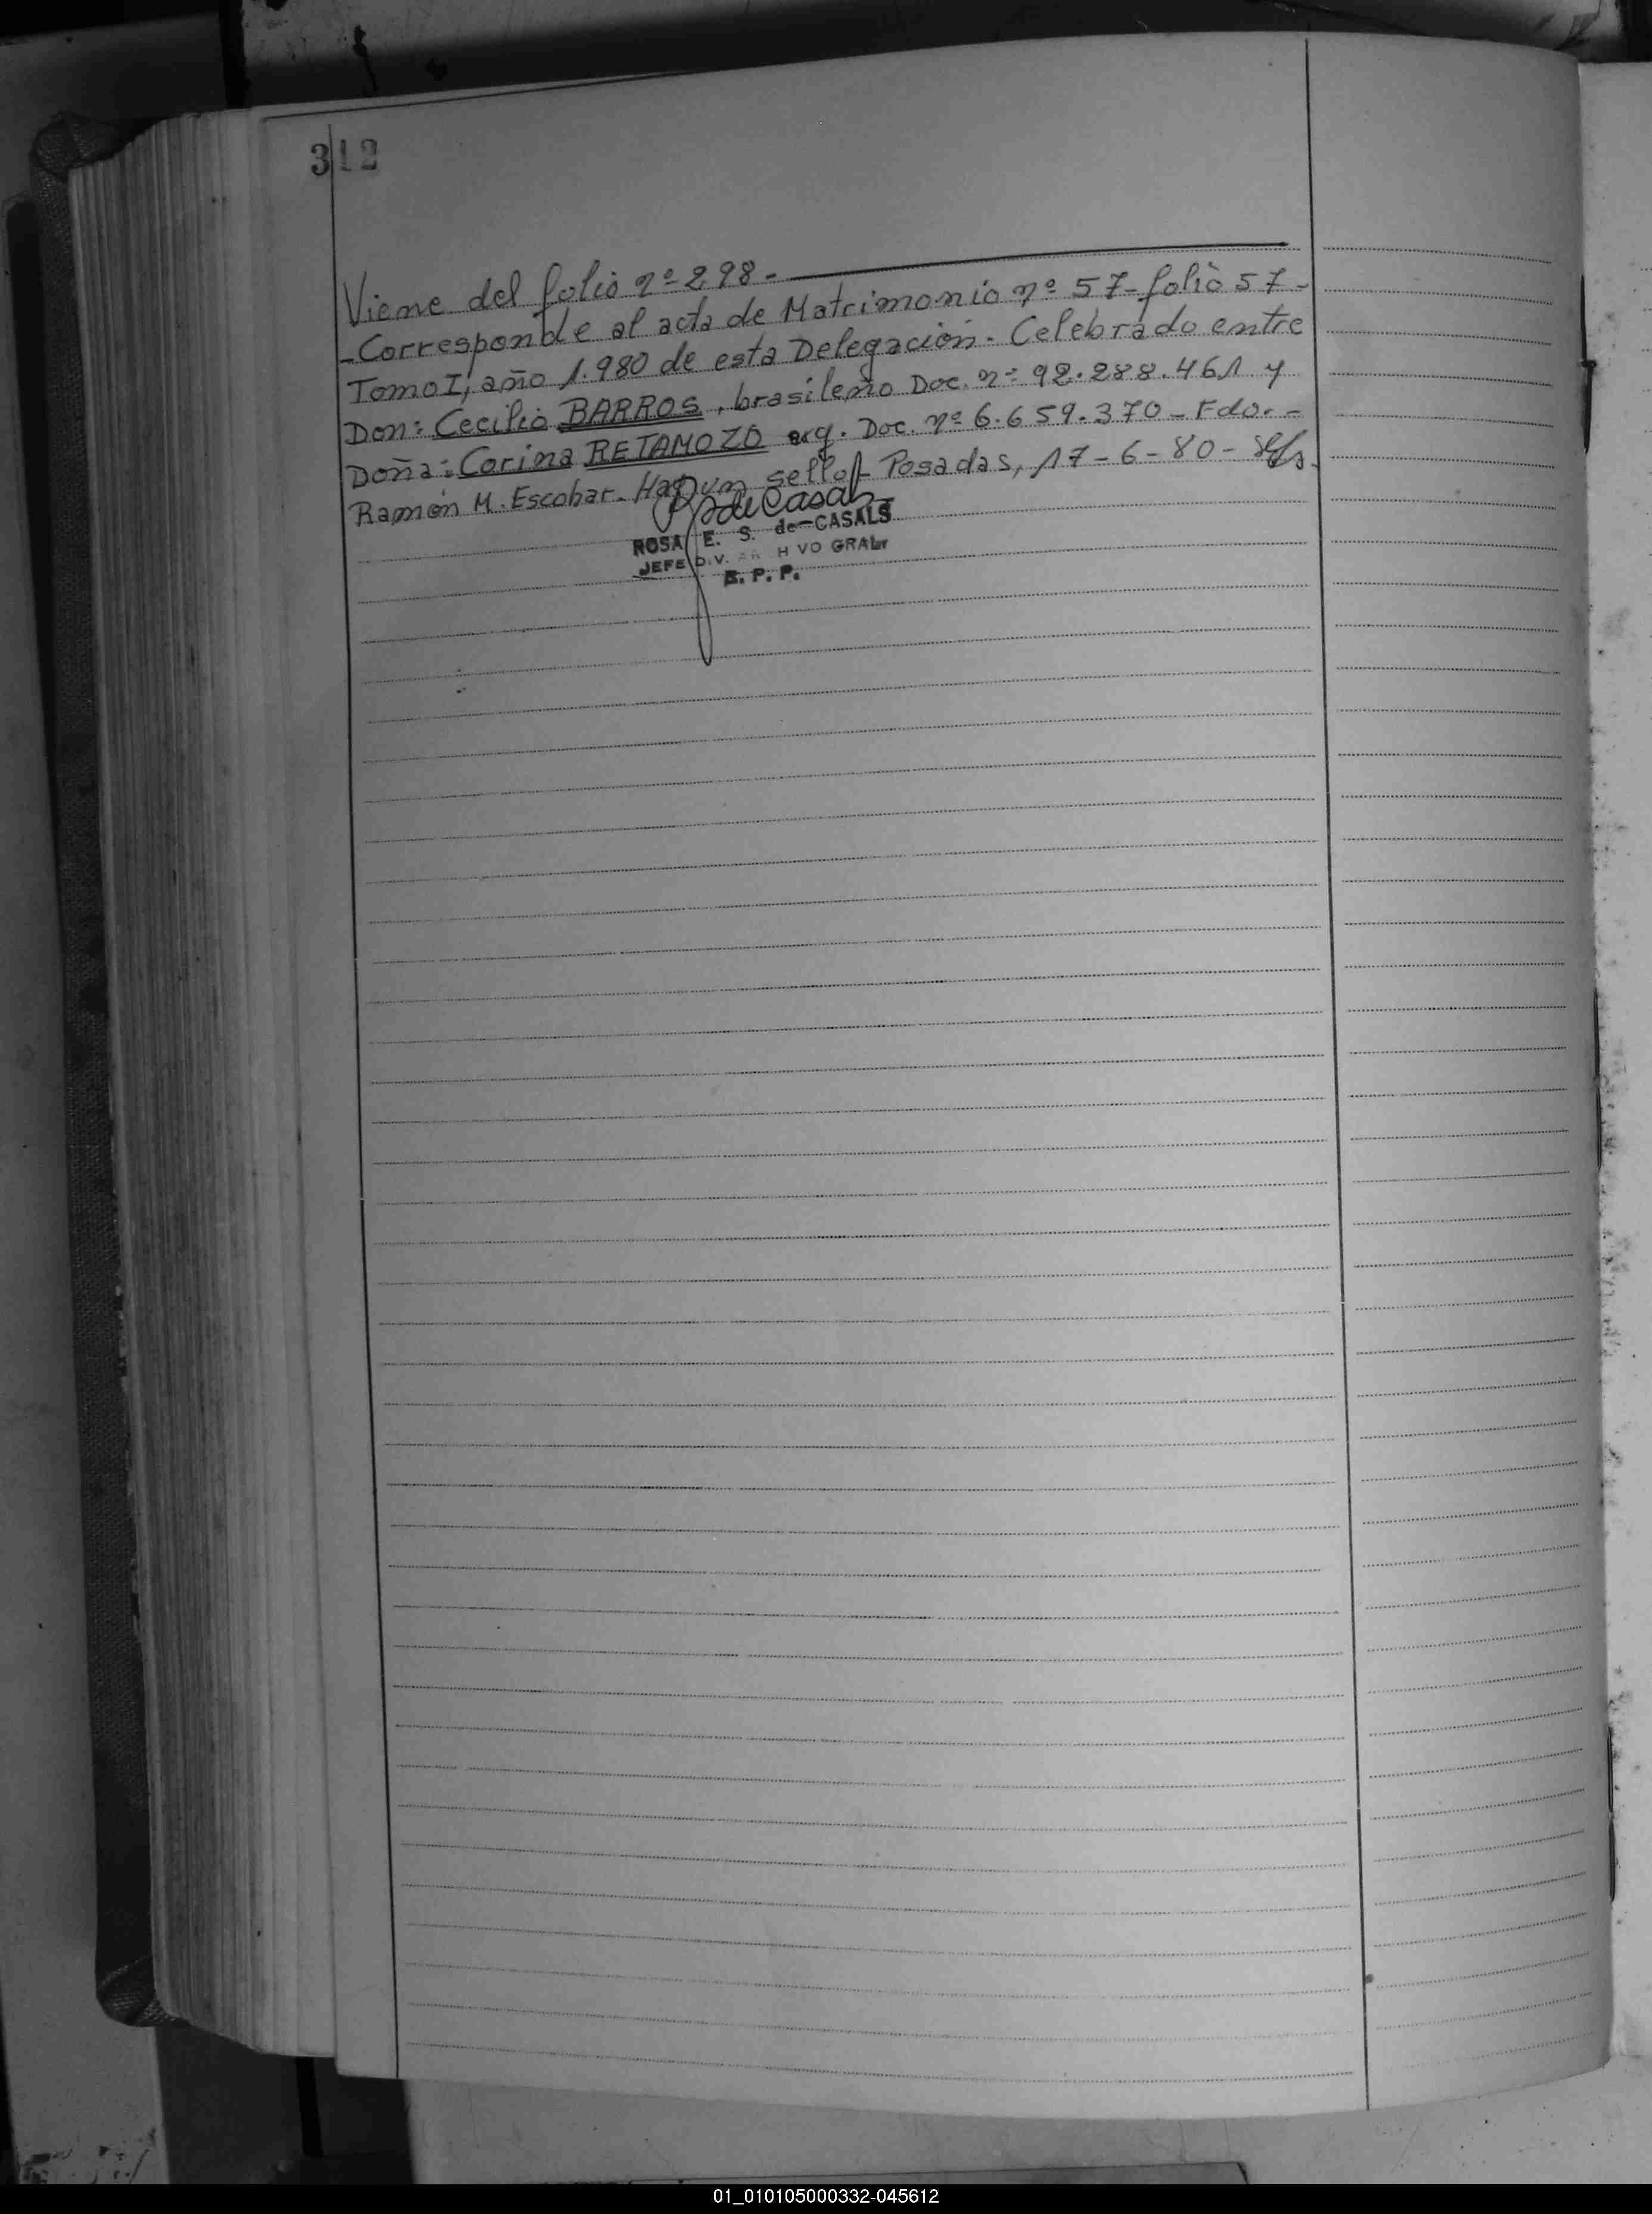 312
Viene del folio nº 298.-
-Corresponde al acta de Matrimonio nº 57-folio 57-
Tomo I, año 1.980 de esta Delegación. Celebrado entre
Don: Cecilio BARROS, brasileño Doc. nº 92.288.461 y
Doña: Corina RETAMOZO arg. Doc. nº 6.659.370 - Fdo. -
Ramón M. Escobar. Hay un sello. Posadas, 17-6-80-
de Casals
ROSA E. S. de CASALS
JEFE DIV. AR H VO GRAL
R. P. P.
01_010105000332-045612